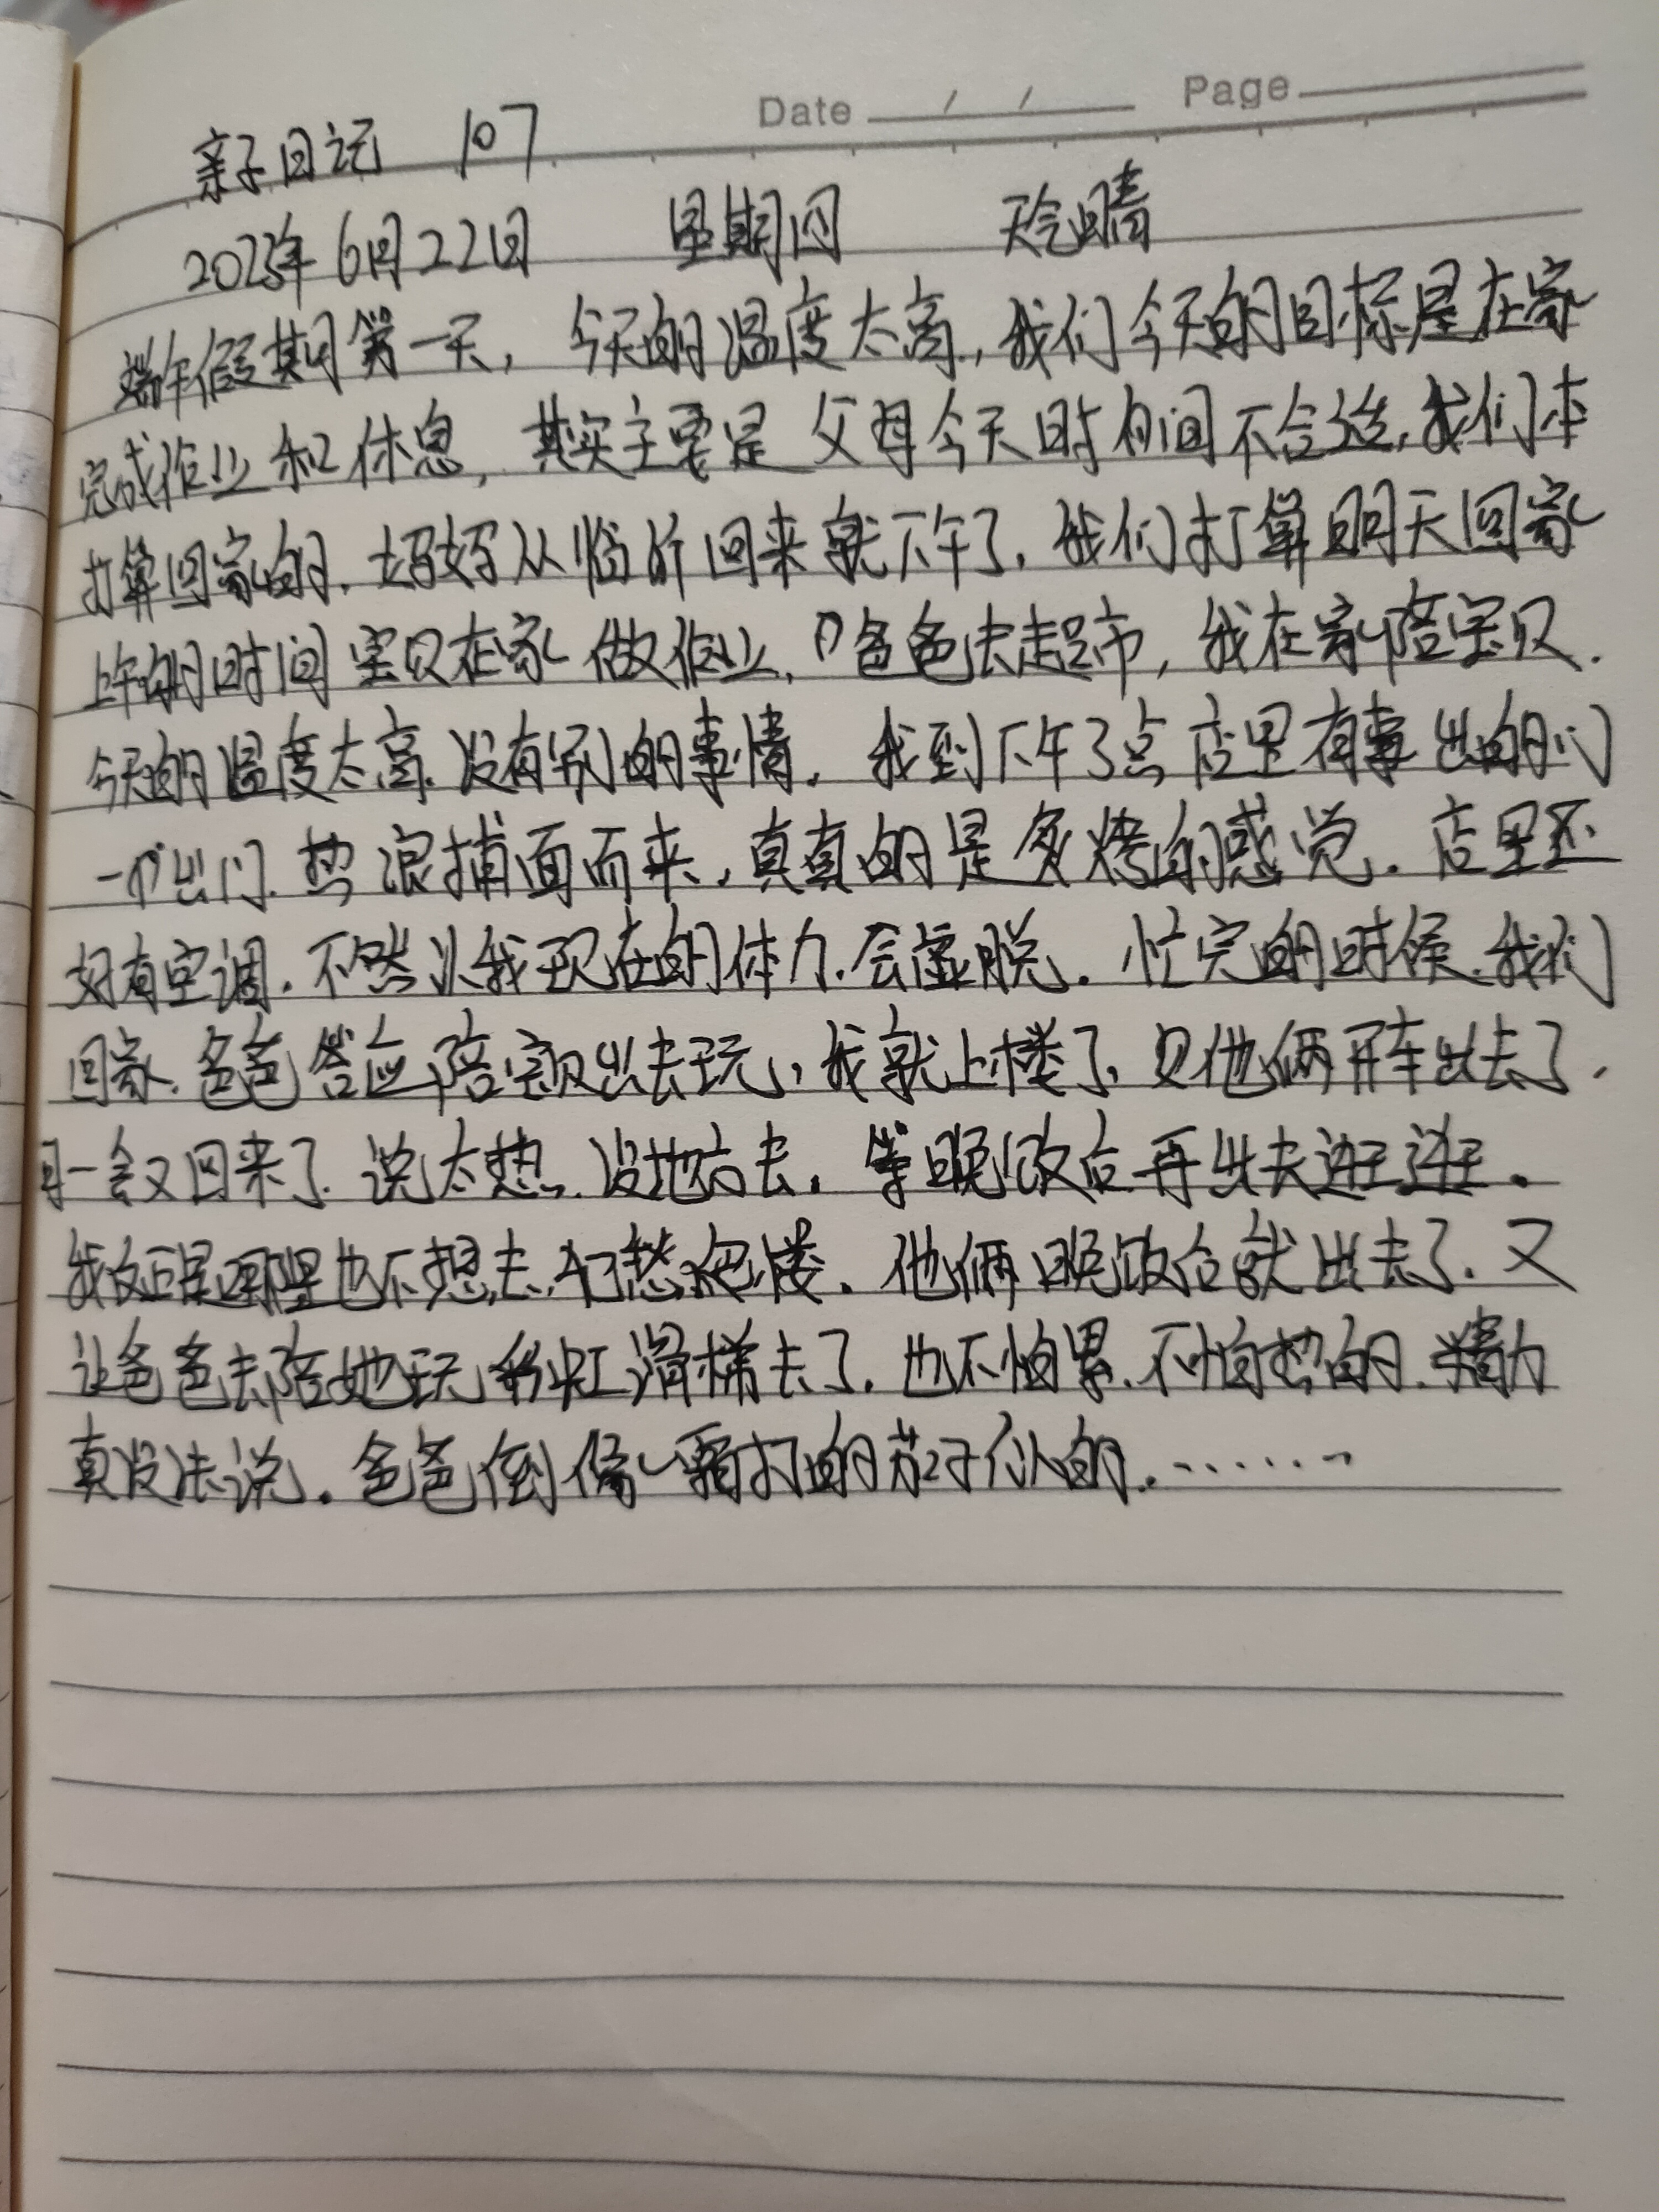 Date / / Page
亲子日记 107
2023年6月22日 星期四 天气晴
端午假期第一天，今天的温度太高，我们今天的目标是在家
完成作业和休息，其实主要是父母今天时间不合适，我们本
打算回家的，妈妈从临沂回来就下午了，我们打算明天回家
上午的时间宝贝在家做作业，爸爸去超市，我在家陪宝贝．
今天的温度太高，没有别的事情．我到下午3点店里有事出的门
一个出门．热浪捕面而来，真真的是炙烤的感觉．店里还
好有空调．不然以我现在的体力．会虚脱．忙完的时候．我们
回家．爸爸答应陪宝贝出去玩，我就上楼了，见他俩开车出去了．
一会又回来了．说太热．没地方去．等晚饭后再出去逛逛．
我反正是哪里也不想去，他俩晚饭后就出去了．又
让爸爸去陪她玩彩虹滑梯去了．也不怕累．不怕热的．精力
真没法说．爸爸倒像霜打的茄子似的．······